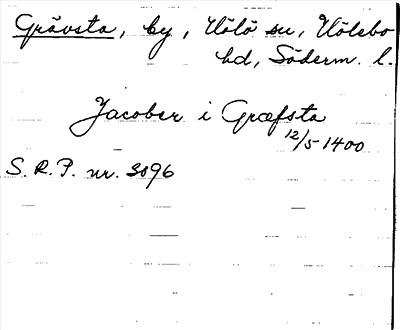 Grävsta, by, Hölö sn, Hölebo
hd, Söderm. l.
Jacober i Græfsta
12/5 1400
S. R. P. nr. 3096